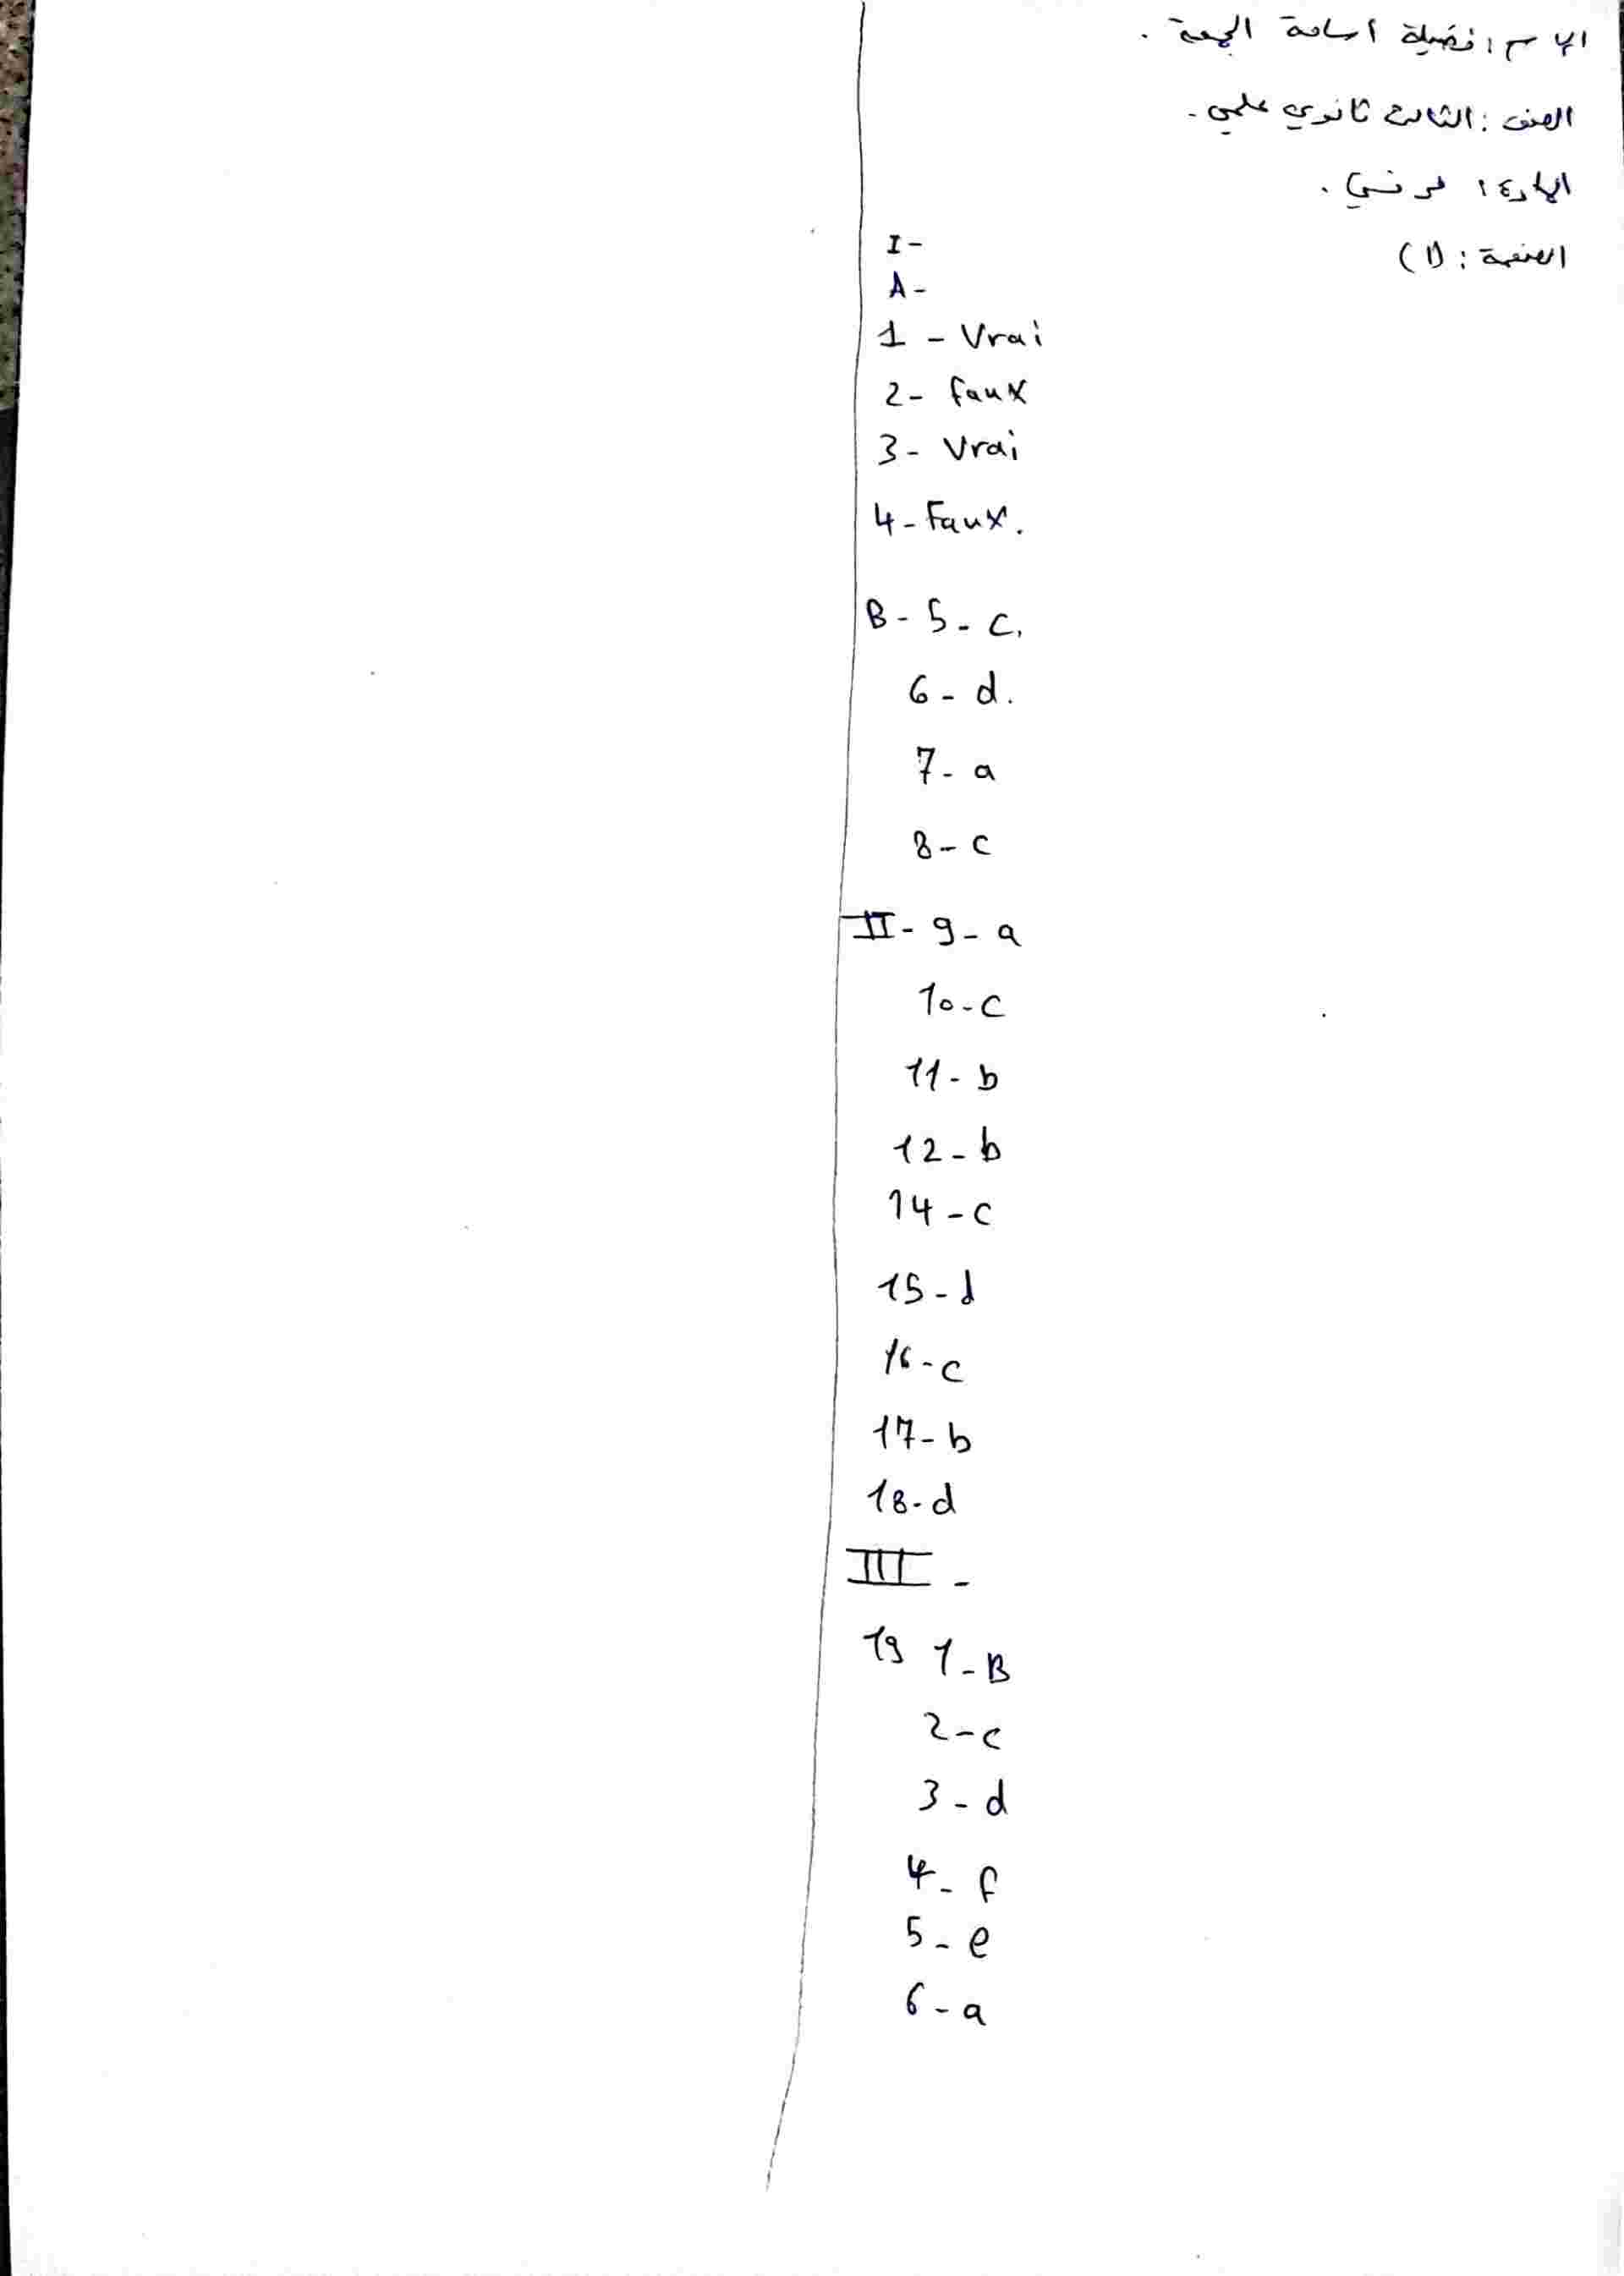 الاسم: فضيلة أسامة الجمعة.
الصف: الثالث ثانوي علمي.
المادة: فرنسي.
الصفحة: (1)
I-
A-
1 - Vrai
2- faux
3- Vrai
4- Faux.
B- 5- c.
6- d.
7- a
8- c
II- 9- a
10-c
11- b
12-b
14-c
15-d
16-c
17-b
18-d
III -
19 1-B
2-c
3-d
4- f
5- e
6-a